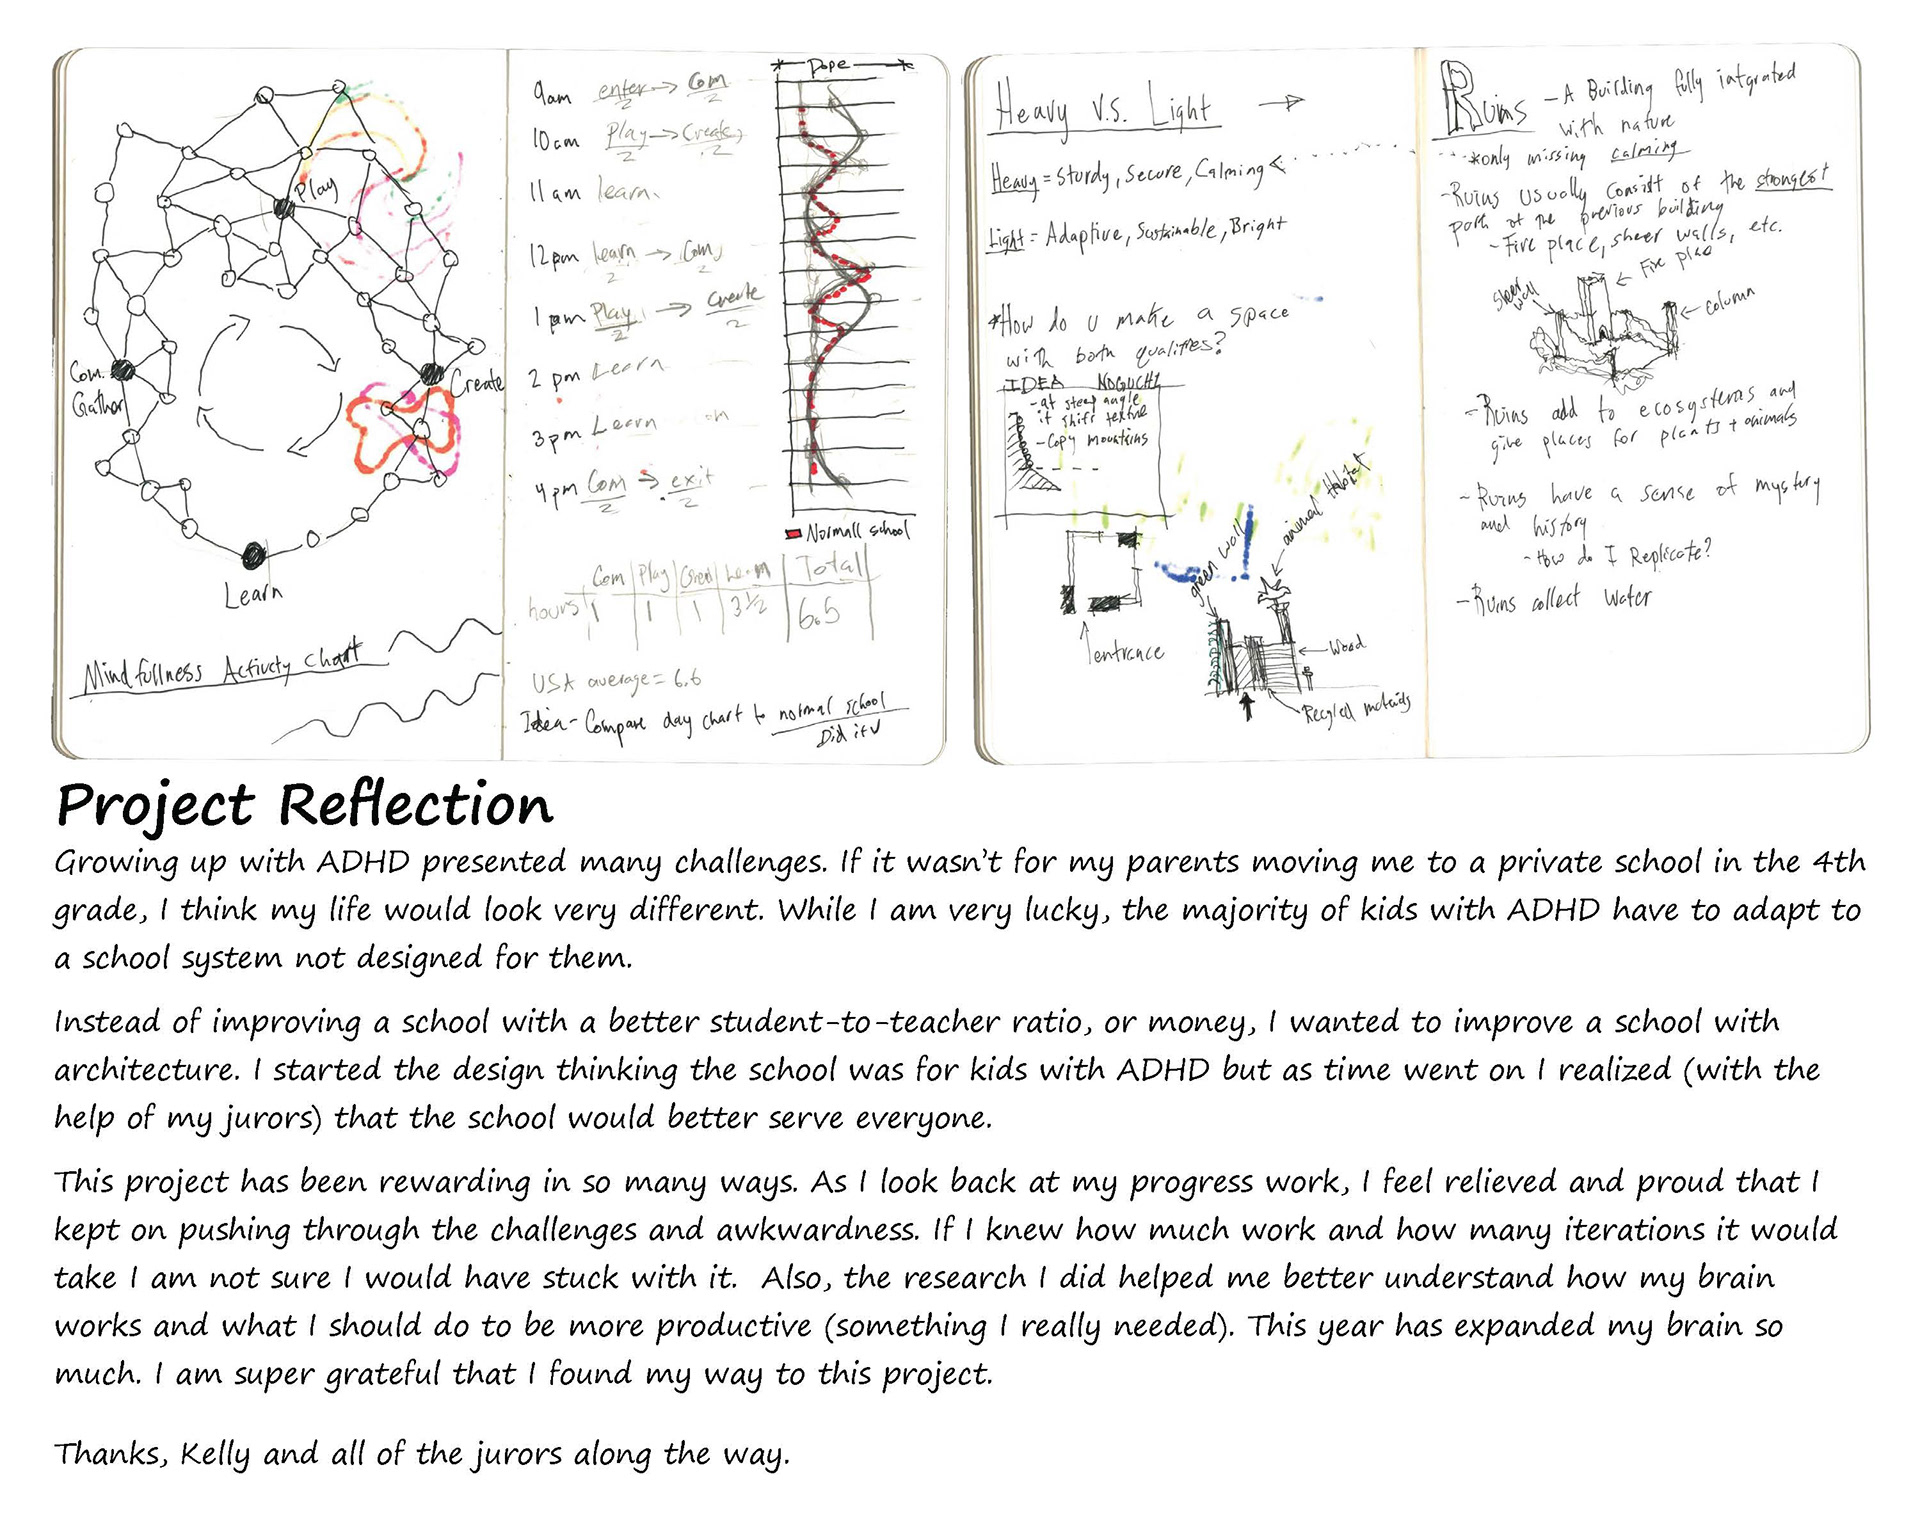 Play
Com.
Gather
Create
Learn
Mindfullness Activity Chart
9am enter/2 → Com/2
10am Play/2 → Create/2
11am learn
12pm learn/2 → Com/2
1pm Play/2 → Create/2
2 pm Learn
3pm Learn
4pm Com/2 → exit/2
Dope
Normall school
Com Play Learn Total
hours 1 1 1 3½ 6.5
USA average = 6.6
Idea - Compare day chart to normal school
Did it ✓
Heavy V.S. Light →
Heavy = Sturdy, Secure, Calming
Light = Adaptive, Sustainable, Bright
*How do u make a space
with both qualities?
IDEA NOGUCHI
- at steep angle
it shift texture
- Copy mountains
entrance
green wall
animal Habitat
Wood
Recycled materials
Ruins - A Building fully intgrated
with nature
*only missing calming
- Ruins usually consist of the strongest
part of the previous building
- Fire place, sheer walls, etc.
sheer
wall
Fire place
column
- Ruins add to ecosystems and
give places for plants + animals
- Ruins have a sense of mystery
and history
- How do I Replicate?
- Ruins collect water
Project Reflection
Growing up with ADHD presented many challenges. If it wasn't for my parents moving me to a private school in the 4th
grade, I think my life would look very different. While I am very lucky, the majority of kids with ADHD have to adapt to
a school system not designed for them.
Instead of improving a school with a better student-to-teacher ratio, or money, I wanted to improve a school with
architecture. I started the design thinking the school was for kids with ADHD but as time went on I realized (with the
help of my jurors) that the school would better serve everyone.
This project has been rewarding in so many ways. As I look back at my progress work, I feel relieved and proud that I
kept on pushing through the challenges and awkwardness. If I knew how much work and how many iterations it would
take I am not sure I would have stuck with it. Also, the research I did helped me better understand how my brain
works and what I should do to be more productive (something I really needed). This year has expanded my brain so
much. I am super grateful that I found my way to this project.
Thanks, Kelly and all of the jurors along the way.